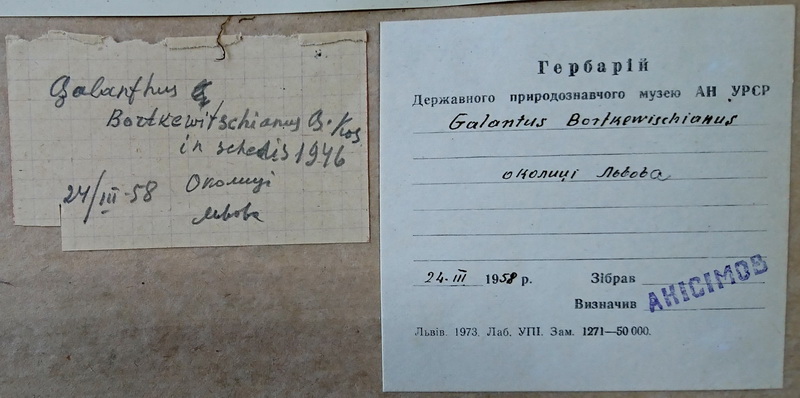 Galanthus
Bortkewitschianus G. Kos
in schedis 1946
24/III-58 Околиці
Львова
Гербарій
Державного природознавчого музею АН УРСР
Galantus Bortkewischianus
околиці Львова
24-III 1958 р. Зібрав
Визначив АНІСІМОВ
Львів. 1973. Лаб. УПІ. Зам. 1271—50 000.